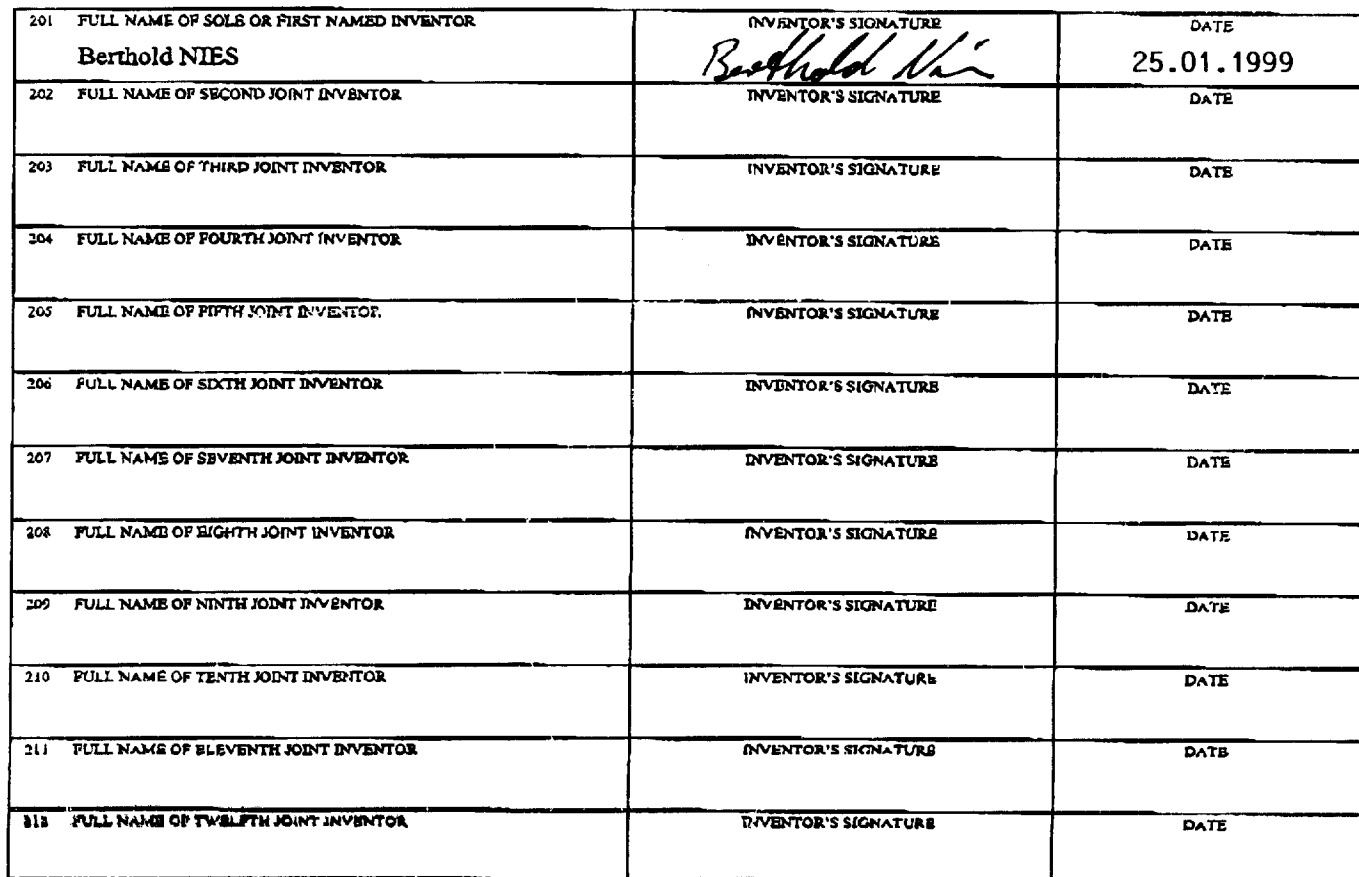 201 FULL NAME OF SOLE OR FIRST NAMED INVENTOR INVENTOR'S SIGNATURE DATE
Berthold NIES Berthold Nies 25.01.1999
202 FULL NAME OF SECOND JOINT INVENTOR INVENTOR'S SIGNATURE DATE
203 FULL NAME OF THIRD JOINT INVENTOR INVENTOR'S SIGNATURE DATE
204 FULL NAME OF FOURTH JOINT INVENTOR INVENTOR'S SIGNATURE DATE
205 FULL NAME OF FIFTH JOINT INVENTOR INVENTOR'S SIGNATURE DATE
206 FULL NAME OF SIXTH JOINT INVENTOR INVENTOR'S SIGNATURE DATE
207 FULL NAME OF SEVENTH JOINT INVENTOR INVENTOR'S SIGNATURE DATE
208 FULL NAME OF EIGHTH JOINT INVENTOR INVENTOR'S SIGNATURE DATE
209 FULL NAME OF NINTH JOINT INVENTOR INVENTOR'S SIGNATURE DATE
210 FULL NAME OF TENTH JOINT INVENTOR INVENTOR'S SIGNATURE DATE
211 FULL NAME OF ELEVENTH JOINT INVENTOR INVENTOR'S SIGNATURE DATE
212 FULL NAME OF TWELFTH JOINT INVENTOR INVENTOR'S SIGNATURE DATE